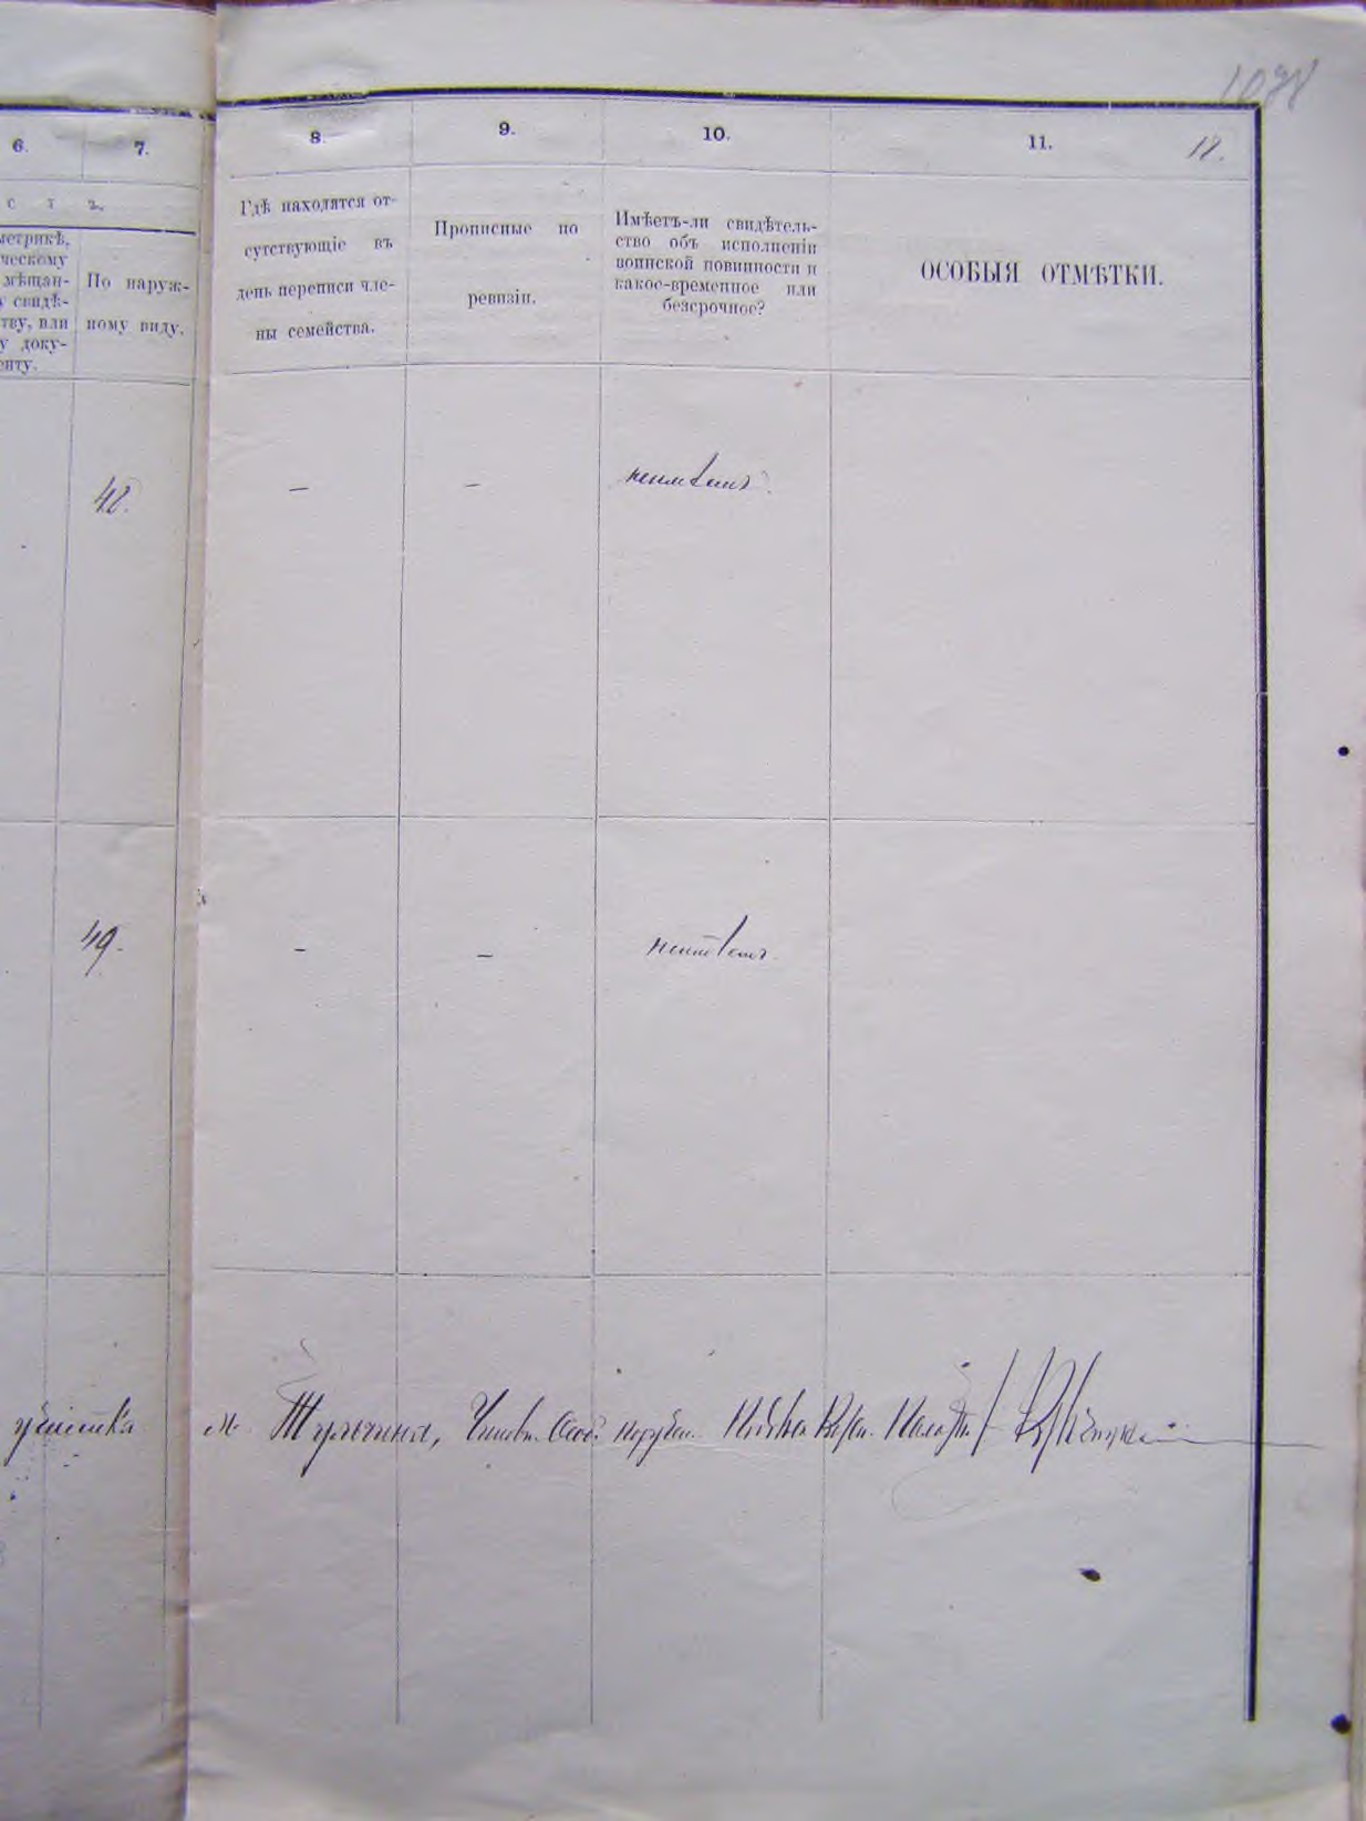 6.
7.
8.
9.
10.
11.
12.
с т ъ.
метрикѣ,
ческому
мѣщан-
свидѣ-
тву, или
у доку-
енту.
По наруж-
ному виду.
Гдѣ находятся от-
сутствующіе въ
день переписи чле-
ны семейства.
Прописные по
ревизіи.
Имѣетъ-ли свидѣтель-
ство объ исполненіи
воинской повинности и
какое-временное или
безсрочное?
ОСОБЫЯ ОТМѢТКИ.
42.
—
—
неимѣетъ
49.
—
—
неимѣетъ
участка м. Тульчина, Чиновн. Особ. поруч.